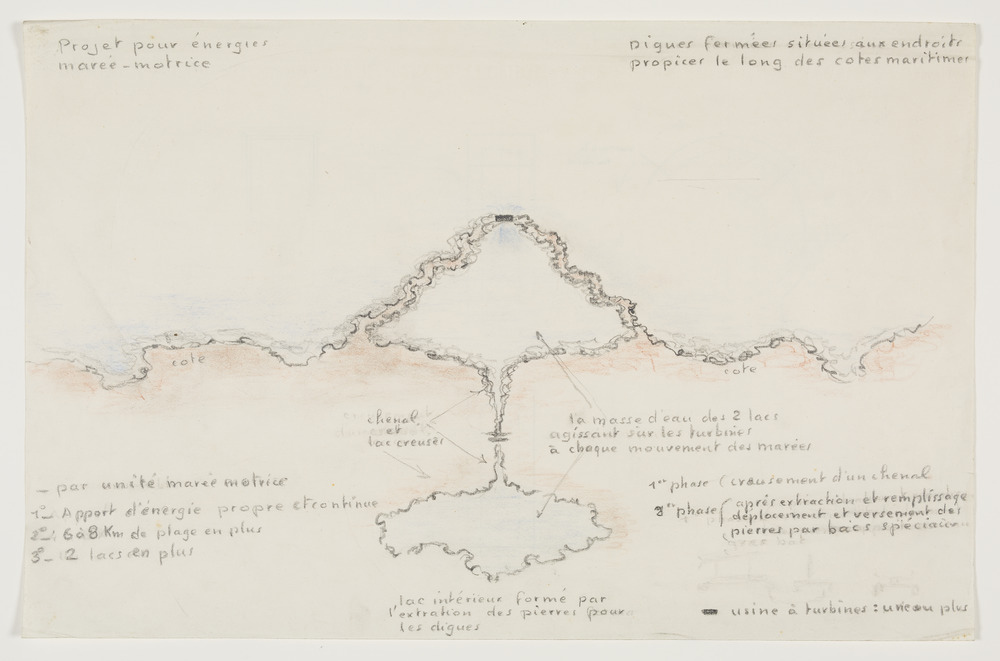 Projet pour énergies
marée-motrice
Digues fermées situées aux endroits
propices le long des cotes maritimes
cote
cote
chenal
et
lac creusés
la masse d'eau des 2 lacs
agissant sur les turbines
à chaque mouvement des marées
- par unité marée motrice
1º- Apport d'énergie propre et continue
2º- 6 à 8 Km de plage en plus
3- 2 lacs en plus
1ere phase (creusement d'un chenal
phase { après extraction et remplissage
déplacement et versement des
pierres par bacs spéciaux
lac intérieur formé par
l'extration des pierres pour
les digues
usine à turbines : une ou plus